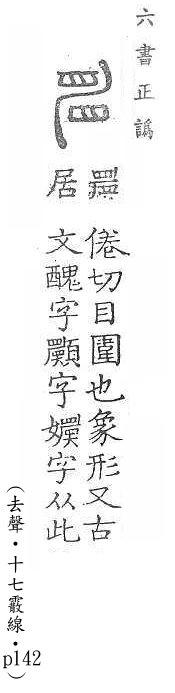 六書正譌
居
倦切目圍也象形又古
文醜字字嬽字从此
（去聲・十七霰線・p142